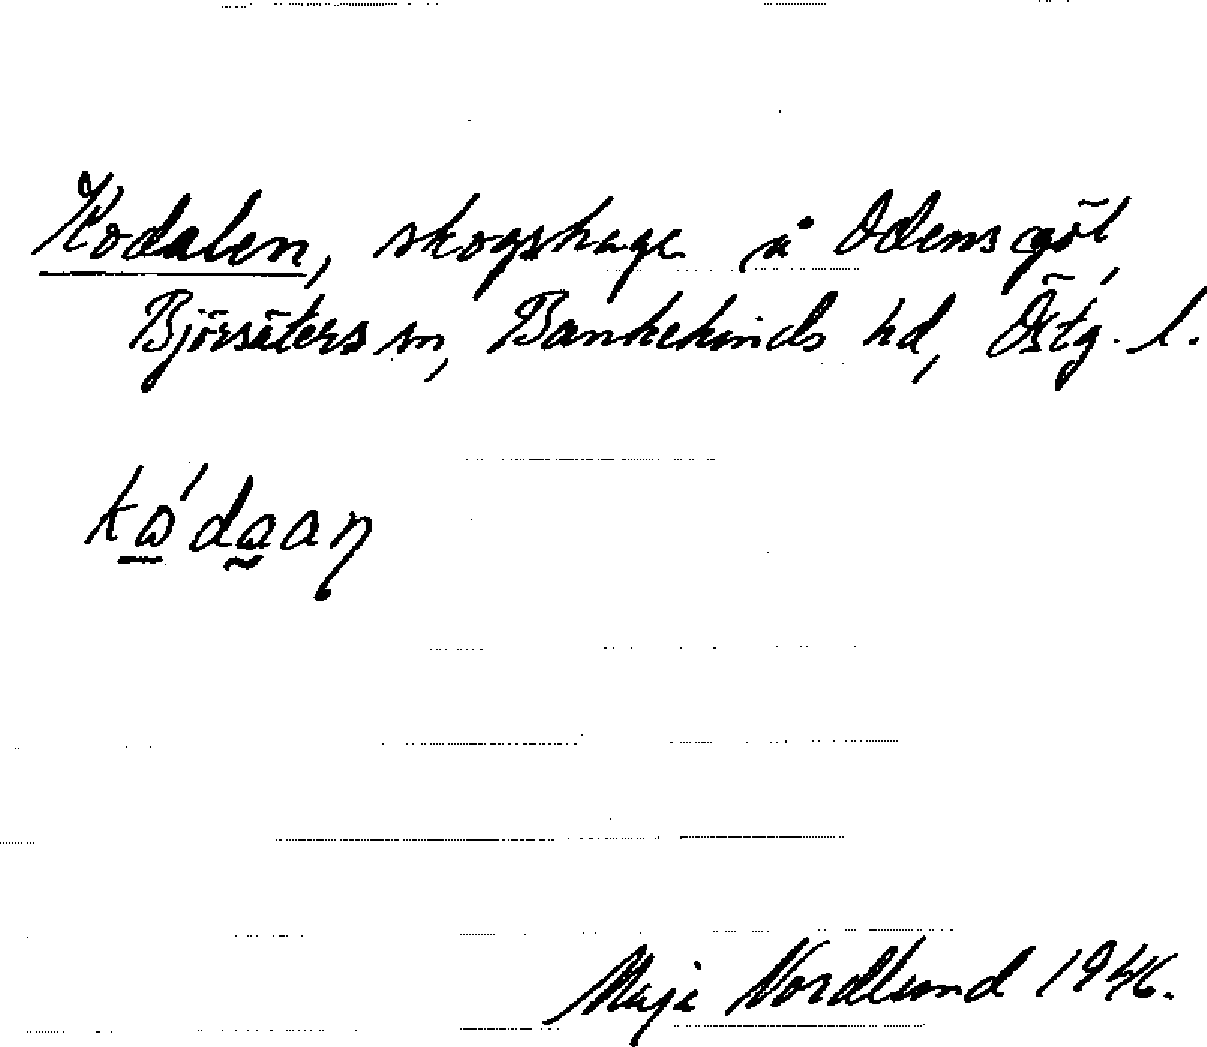 Kodalen, skogshage å Odensgöl,
Björsäters sn, Bankekinds hd, Östg. l.
Maja Nordlund 1946.